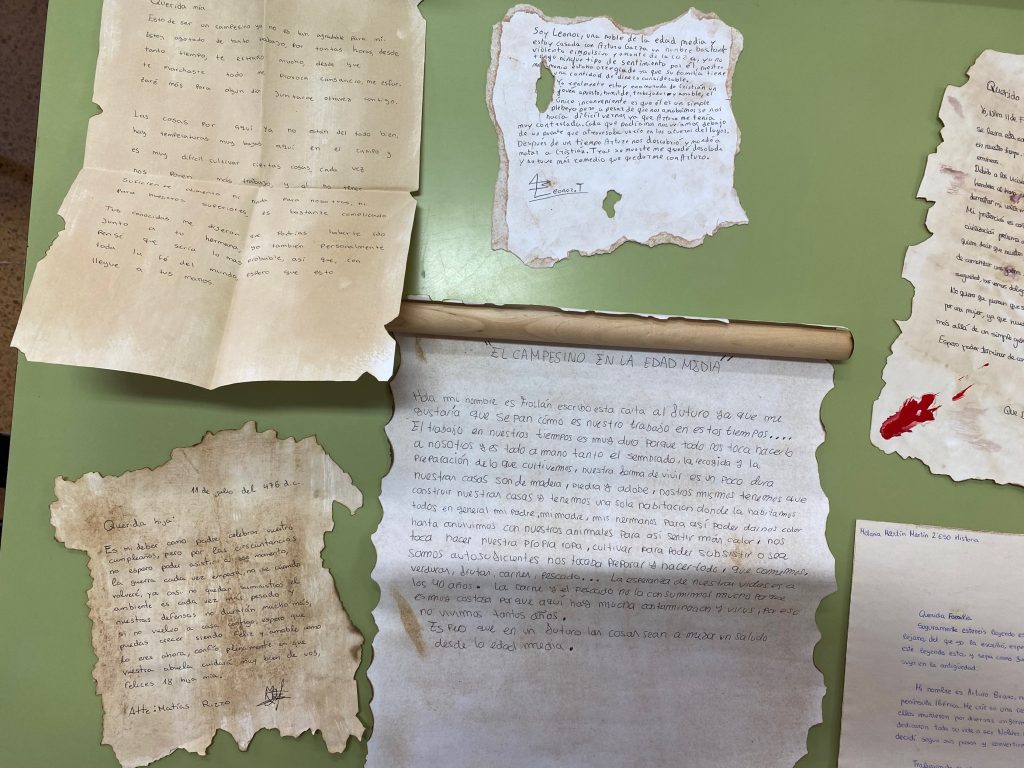 Querida mía
Esto de ser un campesino ya no es tan agradable para mí.
Estoy agotado de tanto trabajo, por tantas horas, desde
tanto tiempo, te extraño mucho, desde que
te marchaste todo me provoca cansancio, me esfor-
zaré más para algún día juntarme contigo.
Las cosas por aquí ya no están del todo bien,
hay temperaturas muy bajas aquí en el campo y
es muy difícil cultivar ciertas cosas, cada vez
nos ponen más trabajo, y al no tener
suficiente alimento ni nada para nosotros, ni
para nuestros superiores, es bastante complicado
Tus conocidas me dijeron que podrías haberte ido
junto a tu hermana, yo también personalmente
pensé que sería lo más probable, así que, con
toda la fé del mundo espero que esto
llegue a tus manos.
Soy Leonor, una noble de la edad media y
estoy casada con Arturo Garza un hombre bastante
violento e impulsivo y amante de la caza, yo no
tengo ningún tipo de sentimiento por él, nuestro
matrimonio estuvo otorgado ya que su familia tiene
una cantidad de dinero considerable.
Yo realmente estoy enamorada de Cristián un
joven apuesto, humilde, trabajador y amable, el
único inconveniente es que él es un simple
plebeyo pero a pesar de que nos amábamos se nos
hacía difícil vernos ya que Arturo me tenía
muy controlada. Cada que podíamos nos veíamos debajo
de un puente que atravesaba un río en las afueras del lugar.
Después de un tiempo Arturo nos descubrió y mandó a
matar a Cristián. Tras su muerte me quedé desolada
y no tuve más remedio que quedarme con Arturo.
Leonor.T
Querido
Mi profesión es co
civilización
quiere decir que nuestro
de comenzar una guerra
No quiero que piensen que
por una mujer, ya que nunca
más allá de un simple
Espero poder terminar de con
Que D
"EL CAMPESINO EN LA EDAD MEDIA"
Hola mi nombre es Froilán escribo esta carta al futuro ya que me
gustaría que sepan cómo es nuestro trabajo en estos tiempos....
El trabajo en nuestros tiempos es muy duro porque todo nos toca hacerlo
a nosotros y es todo a mano tanto el sembrado, la recogida y la
preparación de lo que cultivemos, nuestra forma de vivir es un poco dura
nuestras casas son de madera, piedra y adobe, nostros mismos tenemos que
construir nuestras casas y tenemos una sola habitación donde la habitamos
todos en general mi padre, mi madre, mis hermanos para así poder darnos calor
hasta convivimos con nuestros animales para así sentir más calor, nos
toca hacer nuestra propia ropa, cultivar para poder subsistir o sea
somos autosuficientes nos tocaba preparar y hacer todo, que comíamos,
verduras, frutas, carnes, pescado... La esperanza de nuestras vidas es a
los 40 años. La carne y el pescado no la consumimos mucho porque
es muy costosa porque aquí hay mucha contaminación y virus, por eso
no vivimos tantos años.
Espero que en un futuro las cosas sean a mejor un saludo
desde la edad media.
11 de julio del 476 d.c.
Querida hija:
Es mi deber como padre celebrar vuestro
cumpleaños, pero por las circunstancias
no espero poder asistir a ese momento,
la guerra cada vez empeora, no sé cuándo
volveré, ya casi no quedan suministros, el
ambiente es cada vez más pesado y
nuestras defensas no durarán mucho más,
si no vuelvo a casa contigo, espero que
puedas crecer siendo feliz y amable como
lo eres ahora, confío plenamente en que
vuestra abuela cuidará muy bien de vos,
felices 18 hija mía.
Atte: Matías Rizzo
Martín 2ºESO Historia
Querida Familia
Seguramente estaréis leyendo es
lejano del que yo la escribo, espe
este leyendo esta, y sepa como
surgió en la antigüedad.
Mi nombre es Arturo Bravo, na
península Ibérica. Me crié en una ca
ellos murieron por diversas
dedicaron toda su vida a ser Nobles.
decidí seguir sus pasos y convertirm